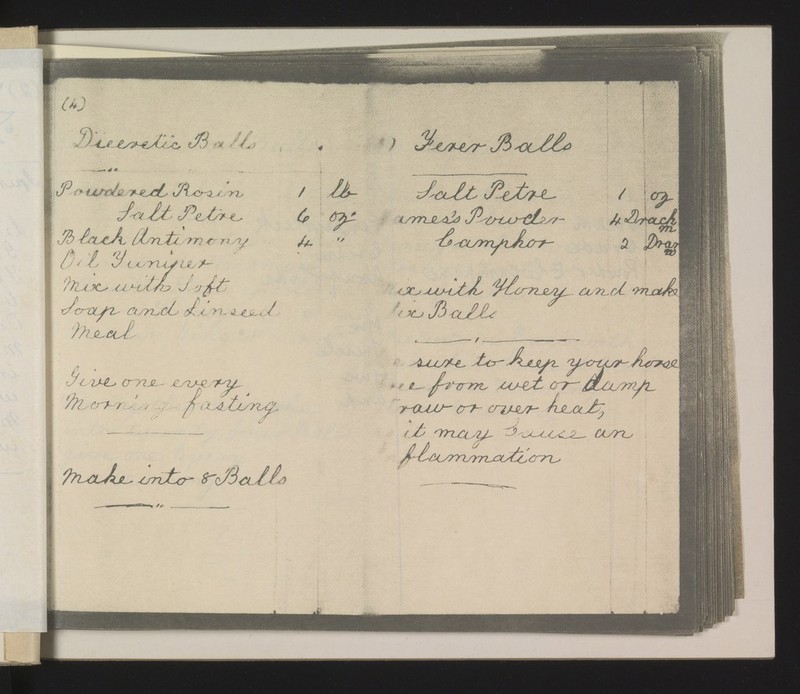 (4)
Dieeretic Balls
Powdered Rosin 1 lb
Salt Petre 6 oz
Black Antimony 4 "
Oil Juniper
Mix with Soft
Soap and Linseed
Meal
Give one every
Morning fasting
Make into 8 Balls
) Fever Balls
Salt Petre 1 oz
ames's Powder 4 Drachm
Camphor 2 Dram
ix with Honey and make
ix Balls
e sure to keep your horse
ee from wet or damp
raw or over heat,
it may cause an
flammation